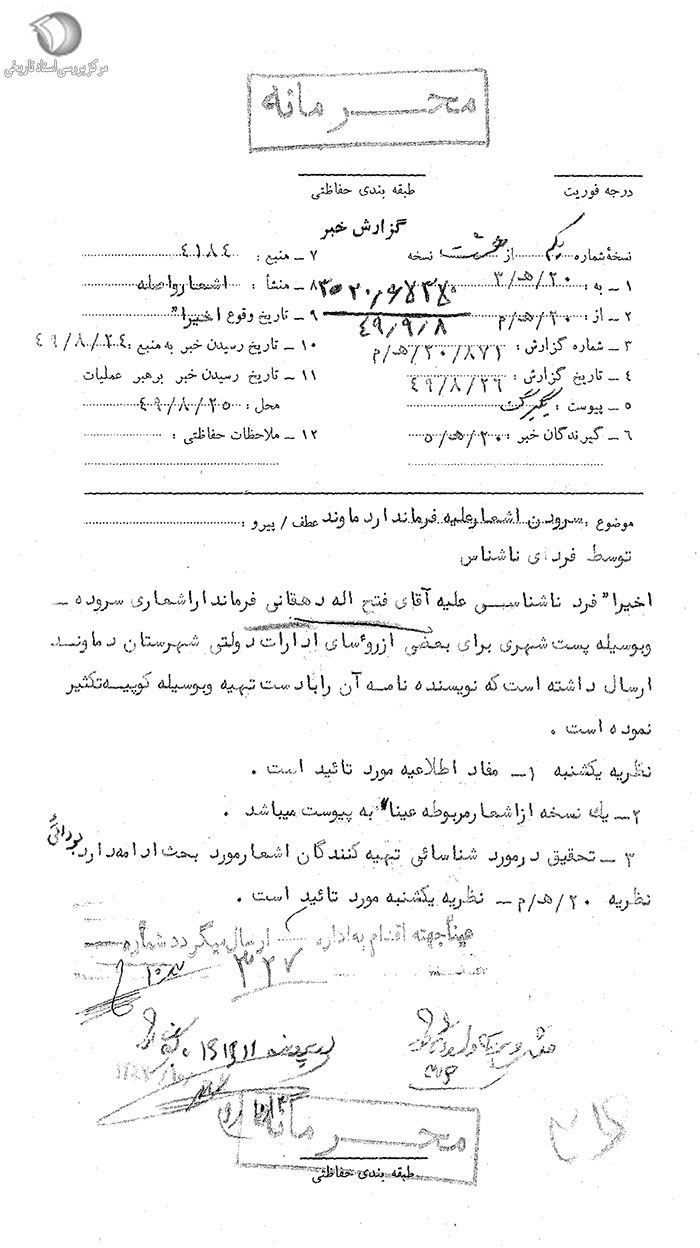 مرکز بررسی اسناد تاریخی
محرمانه
درجه فوریت
طبقه بندی حفاظتی
گزارش خبر
نسخهٔ شماره یکم از هشت نسخه
۱ – به : ۲۰/هـ/۳
۲ – از : ۲۰/هـ/م
۳ – شماره گزارش : ۸۷۲/۲۰/هـ/م
۴ – تاریخ گزارش : ۴۹/۸/۲۶
۵ – پیوست : یکبرگ
۶ – گیرندگان خبر : ۲۰/هـ/۵
۷ – منبع : ۴۱۸۴
۸ – منشأ : اشعار واصله
۹ – تاریخ وقوع اخیرا"
۱۰ – تاریخ رسیدن خبر به منبع : ۴۹/۸/۲۴
۱۱ – تاریخ رسیدن خبر برهبر عملیات
محل : ۴۹/۸/۲۵
۱۲ – ملاحظات حفاظتی :
۴۹/۹/۸
موضوع : سرودن اشعار علیه فرماندار دماوند عطف / پیرو :
توسط فردای ناشناس
اخیرا" فرد ناشناسی علیه آقای فتح اله دهقانی فرماندار اشعاری سروده –
وبوسیله پست شهری برای بعضی از روٴسای ادارات دولتی شهرستان دماوند
ارسال داشته است که نویسنده نامه آن را با دست تهیه وبوسیله کوپیه تکثیر
نموده است .
نظریه یکشنبه ۱– مفاد اطلاعیه مورد تائید است .
۲– یك نسخه از اشعار مربوطه عینا" به پیوست میباشد .
۳ – تحقیق درمورد شناسائی تهیه کنندگان اشعار مورد بحث ادامه دارد
نظریه ۲۰/هـ/م – نظریه یکشنبه مورد تائید است .
عیناً جهته اقدام به اداره ارسال میگردد شماره
۳۲۷
محرمانه
طبقه بندی حفاظتی